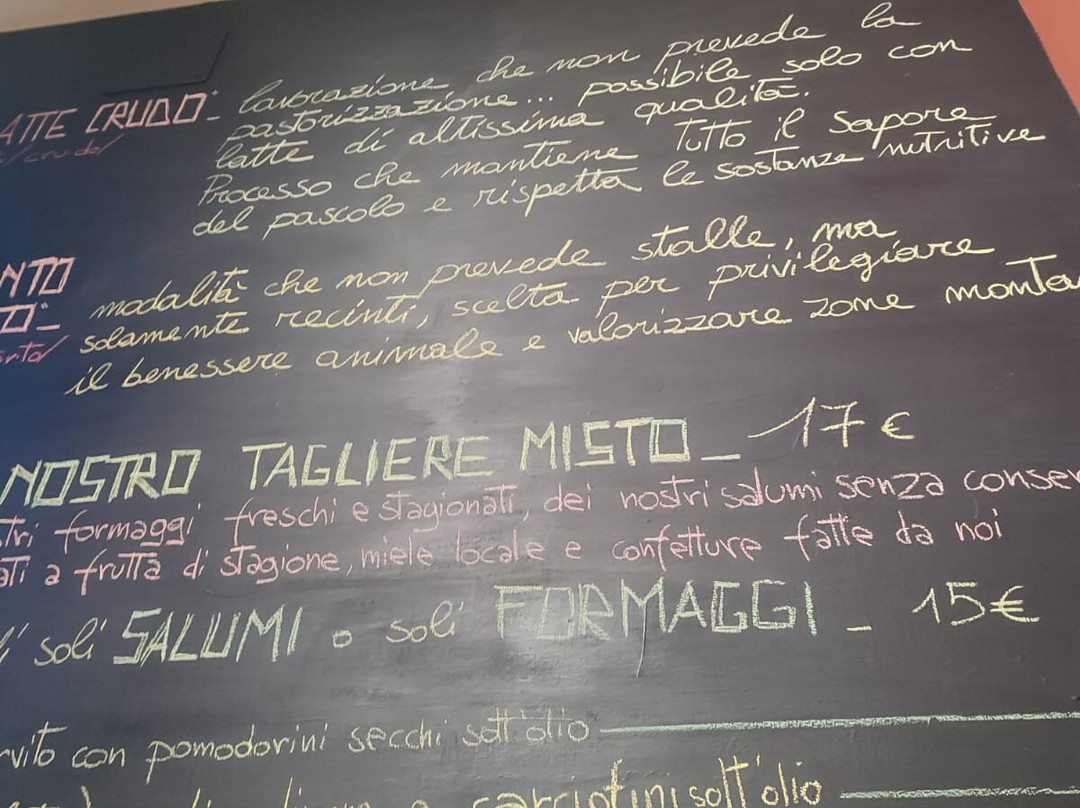 ATTE CRUDO"_ lavorazione che non prevede la
/crudo/ pastorizzazione... possibile solo con
latte di altissima qualità.
Processo che mantiene Tutto il sapore
del pascolo e rispetta le sostanze nutritive
NTO modalità che non prevede stalle, ma
O"_ solamente recinti, scelta per privilegiare
il benessere animale e valorizzare zone monta
NOSTRO TAGLIERE MISTO_ 17 €
tri formaggi freschi e stagionati, dei nostri salumi senza conser
ati a frutta di stagione, miele locale e confetture fatte da noi
i soli SALUMI o soli FORMAGGI_ 15€
rvito con pomodorini secchi sott'olio
e carciofini sott'olio